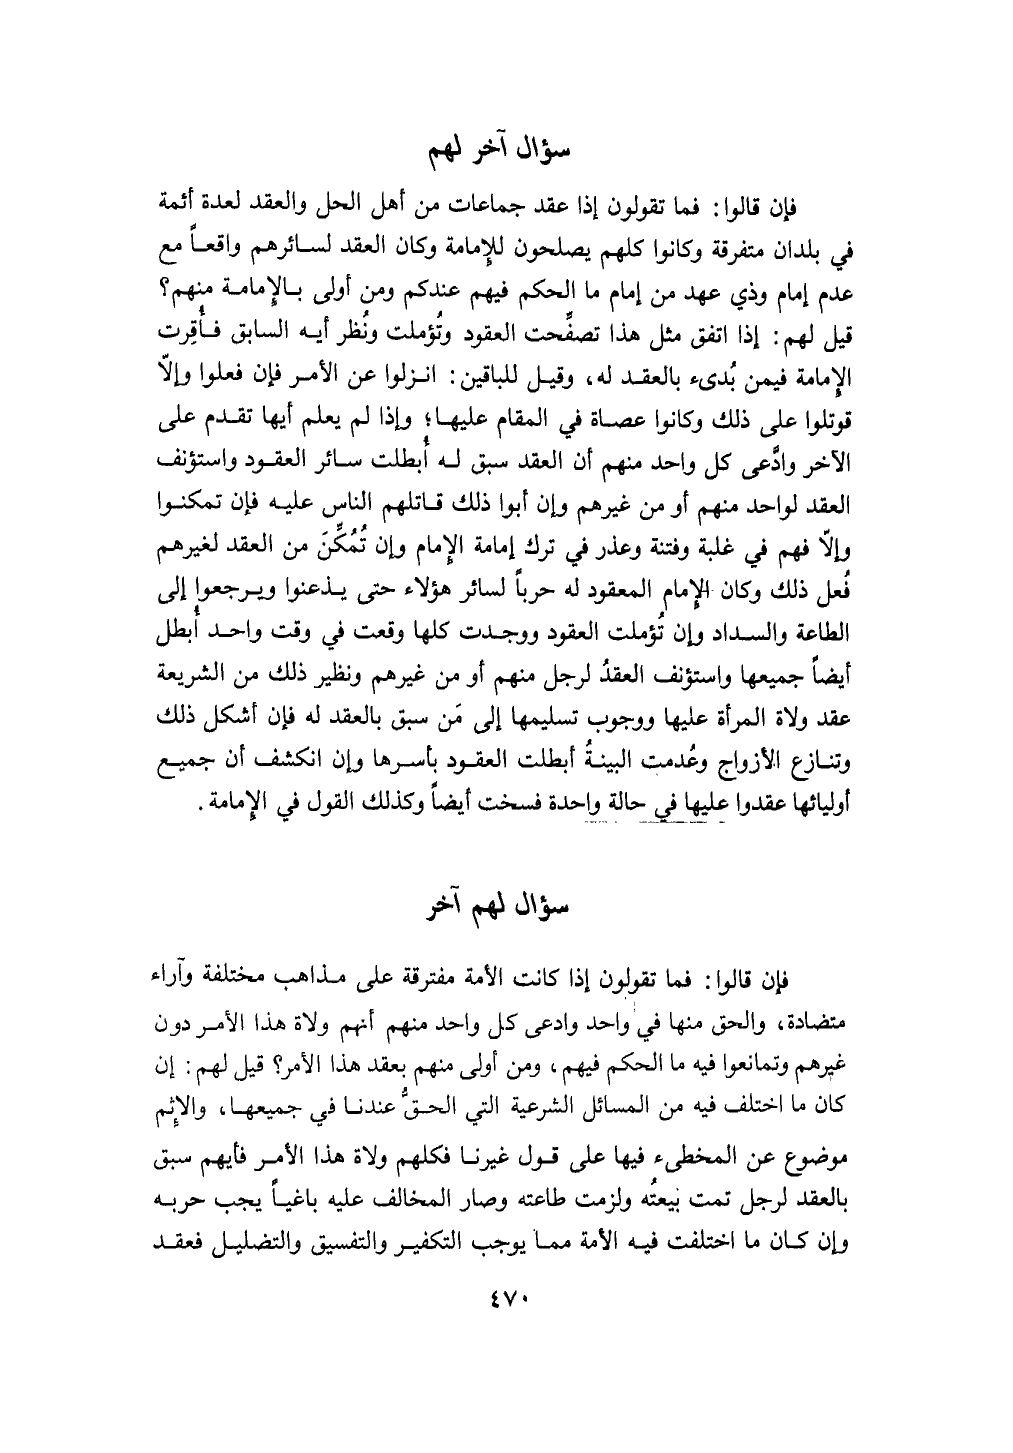 سؤال آخر لهم
فإن قالوا: فما تقولون إذا عقد جماعات من أهل الحل والعقد لعدة أئمة
في بلدان متفرقة وكانوا كلهم يصلحون للإمامة وكان العقد لسائرهم واقعاً مع
عدم إمام وذي عهد من إمام ما الحكم فيهم عندكم ومن أولى بالإمامة منهم؟
قيل لهم: إذا اتفق مثل هذا تصفّحت العقود وتُؤملت ونُظر أيه السابق فأُقِرت
الإمامة فيمن بُدىء بالعقد له، وقيل للباقين: انزلوا عن الأمر فإن فعلوا وإلاّ
قوتلوا على ذلك وكانوا عصاة في المقام عليها؛ وإذا لم يعلم أيها تقدم على
الآخر وادَّعى كل واحد منهم أن العقد سبق له أُبطلت سائر العقود واستؤنف
العقد لواحد منهم أو من غيرهم وإن أبوا ذلك قاتلهم الناس عليه فإن تمكنوا
وإلّا فهم في غلبة وفتنة وعذر في ترك إمامة الإمام وإن تُمُكِّنَ من العقد لغيرهم
فُعل ذلك وكان الإمام المعقود له حرباً لسائر هؤلاء حتى يذعنوا ويرجعوا إلى
الطاعة والسداد وإن تُؤملت العقود ووجدت كلها وقعت في وقت واحد أُبطل
أيضاً جميعها واستؤنف العقدُ لرجل منهم أو من غيرهم ونظير ذلك من الشريعة
عقد ولاة المرأة عليها ووجوب تسليمها إلى مَن سبق بالعقد له فإن أشكل ذلك
وتنازع الأزواج وعُدمت البينةُ أبطلت العقود بأسرها وإن انكشف أن جميع
أوليائها عقدوا عليها في حالة واحدة فسخت أيضاً وكذلك القول في الإمامة.
سؤال لهم آخر
فإن قالوا: فما تقولون إذا كانت الأمة مفترقة على مذاهب مختلفة وآراء
متضادة، والحق منها في واحد وادعى كل واحد منهم أنهم ولاة هذا الأمر دون
غيرهم وتمانعوا فيه ما الحكم فيهم، ومن أولى منهم بعقد هذا الأمر؟ قيل لهم: إن
كان ما اختلف فيه من المسائل الشرعية التي الحقُّ عندنا في جميعها، والإثم
موضوع عن المخطىء فيها على قول غيرنا فكلهم ولاة هذا الأمر فأيهم سبق
بالعقد لرجل تمت بيعتُه ولزمت طاعته وصار المخالف عليه باغياً يجب حربه
وإن كان ما اختلفت فيه الأمة مما يوجب التكفير والتفسيق والتضليل فعقد
٤٧٠